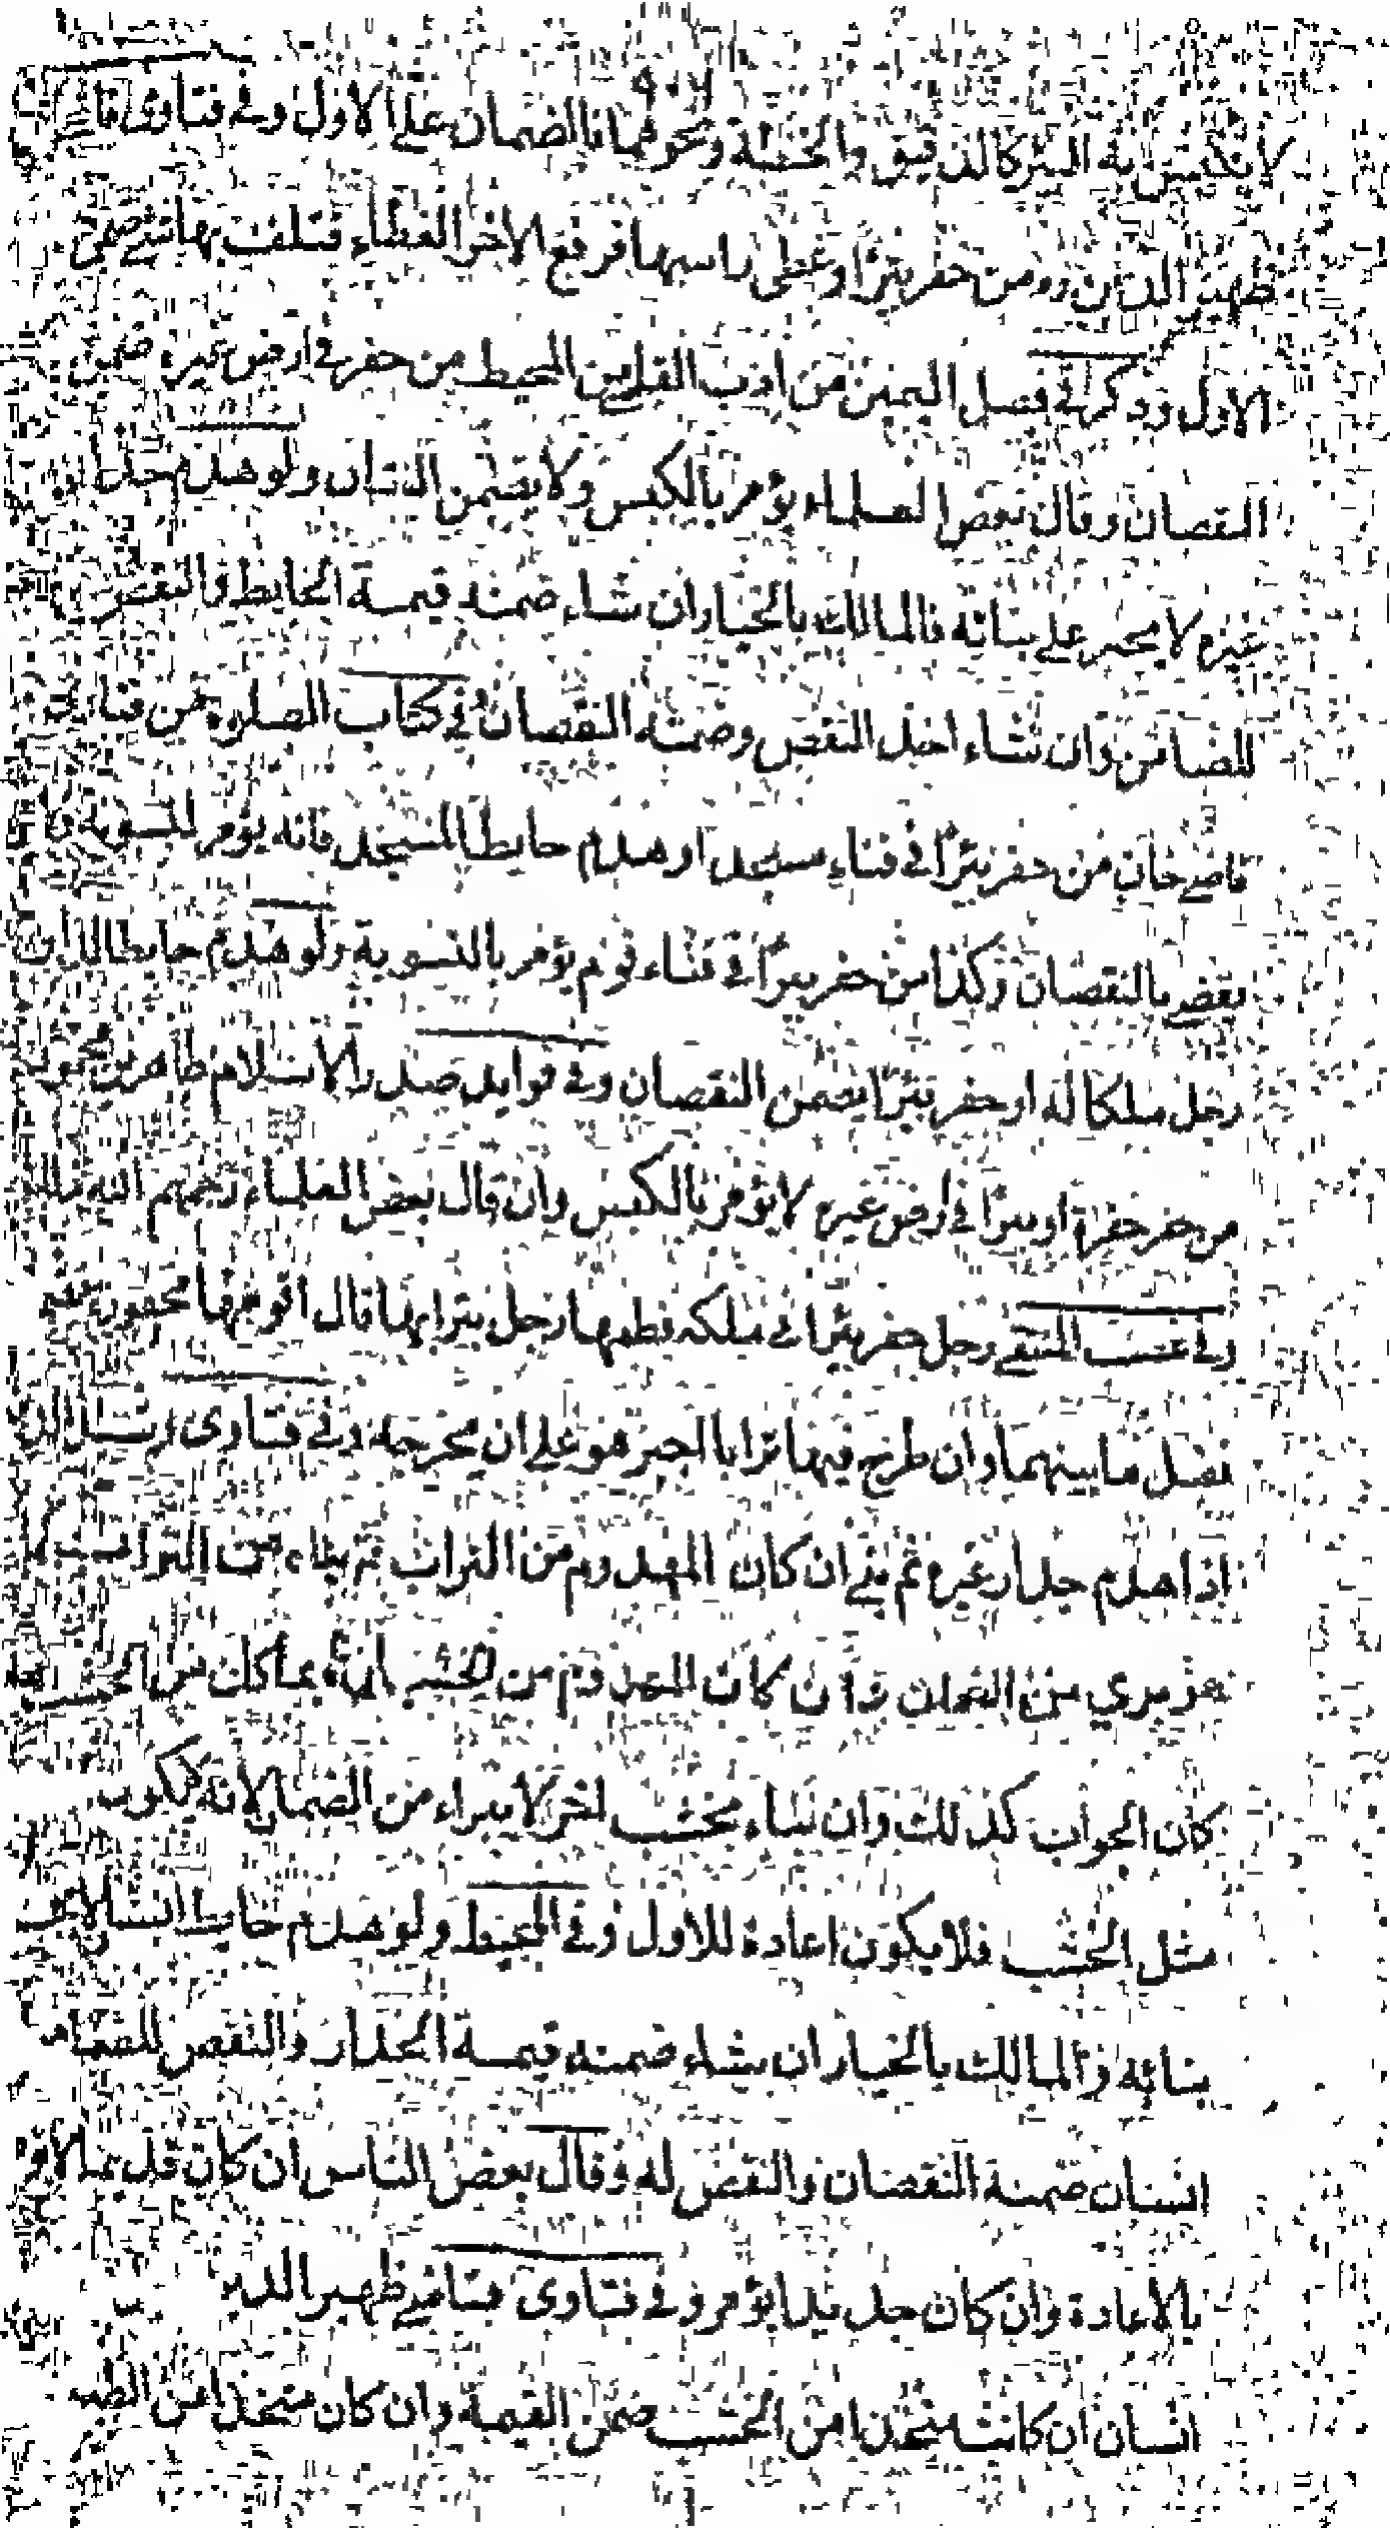 لا تكبس به البئر كالدقيق والحنطة ونحوهما فالضمان على الاول وفي فتاوى
ظهير الدين ومن حفر بئرا وغطى راسها فرفع الاخر الغطاء فتلفت بها شئ ضمن
الاول وذكر في فصل اليمين من ادب القاضي من المحيط من حفر في ارض غيره ضمن
النقصان وقال بعض العلماء يؤمر بالكبس ولا يضمن النقصان ولو هدم جدار
غيره لا يجبر على بنائه فالمالك بالخيار ان شاء ضمنه قيمة الحايط والنقض
للضامن وان شاء اخذ النقض وضمنه النقصان في كتاب الصلوة من فتاوى
قاضي خان من حفر بئرا في فناء مسجد او هدم حايط المسجد فانه يؤمر بالتسوية ولا
يقضى بالنقصان وكذا من حفر بئرا في فناء قوم يؤمر بالتسوية ولو هدم حايطا
رجل ملكا له او حفر بئرا يضمن النقصان وفي فوايد صدر الاسلام طاهر بن محمود
من حفر حفرة او بئرا في ارض غيره لا يؤمر بالكبس وان قال بعض العلماء رحمهم الله
وفي غصب المنتقى رجل حفر بئرا في ملكه فطمها رجل بترابها قال اقومها محفورة
فضل ما بينهما وان طرح فيها ترابا اجبر هو على ان يخرجه وفي فتاوى
اذا هدم جدار غيره ثم بنى ان كان المهدوم من التراب ثم بناه من التراب
هو بري من الضمان وان كان المهدوم من الخشب بما كان من الخشب
كان الجواب كذلك وان بناه بخشب اخر لا يبراء من الضمان لانه لا يكون
مثل الخشب فلا يكون اعادة للاول وفي المحيط ولو هدم حايط انسان لا يجبر
بنائه والمالك بالخيار ان شاء ضمنه قيمة الجدار والنقض للضامن
انسان ضمنه النقصان والنقض له وقال بعض الناس ان كان قديما لا يؤمر
بالاعادة وان كان جديدا يؤمر وفي فتاوى قاضي ظهير الدين
انسان ان كانت متخذا من الخشب ضمن القيمة وان كان متخذا من الطين